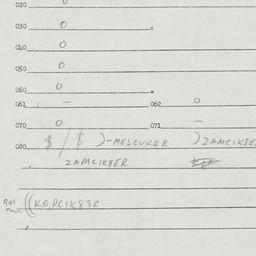 020 0
030 0
040 0
050 0
060 0
061 — 062 0
070 0 071 —
080 $ / $ )-MELCUKER )ZAMCIK8E
ZAMCIK8ER
901 ((KO,PCIK83R